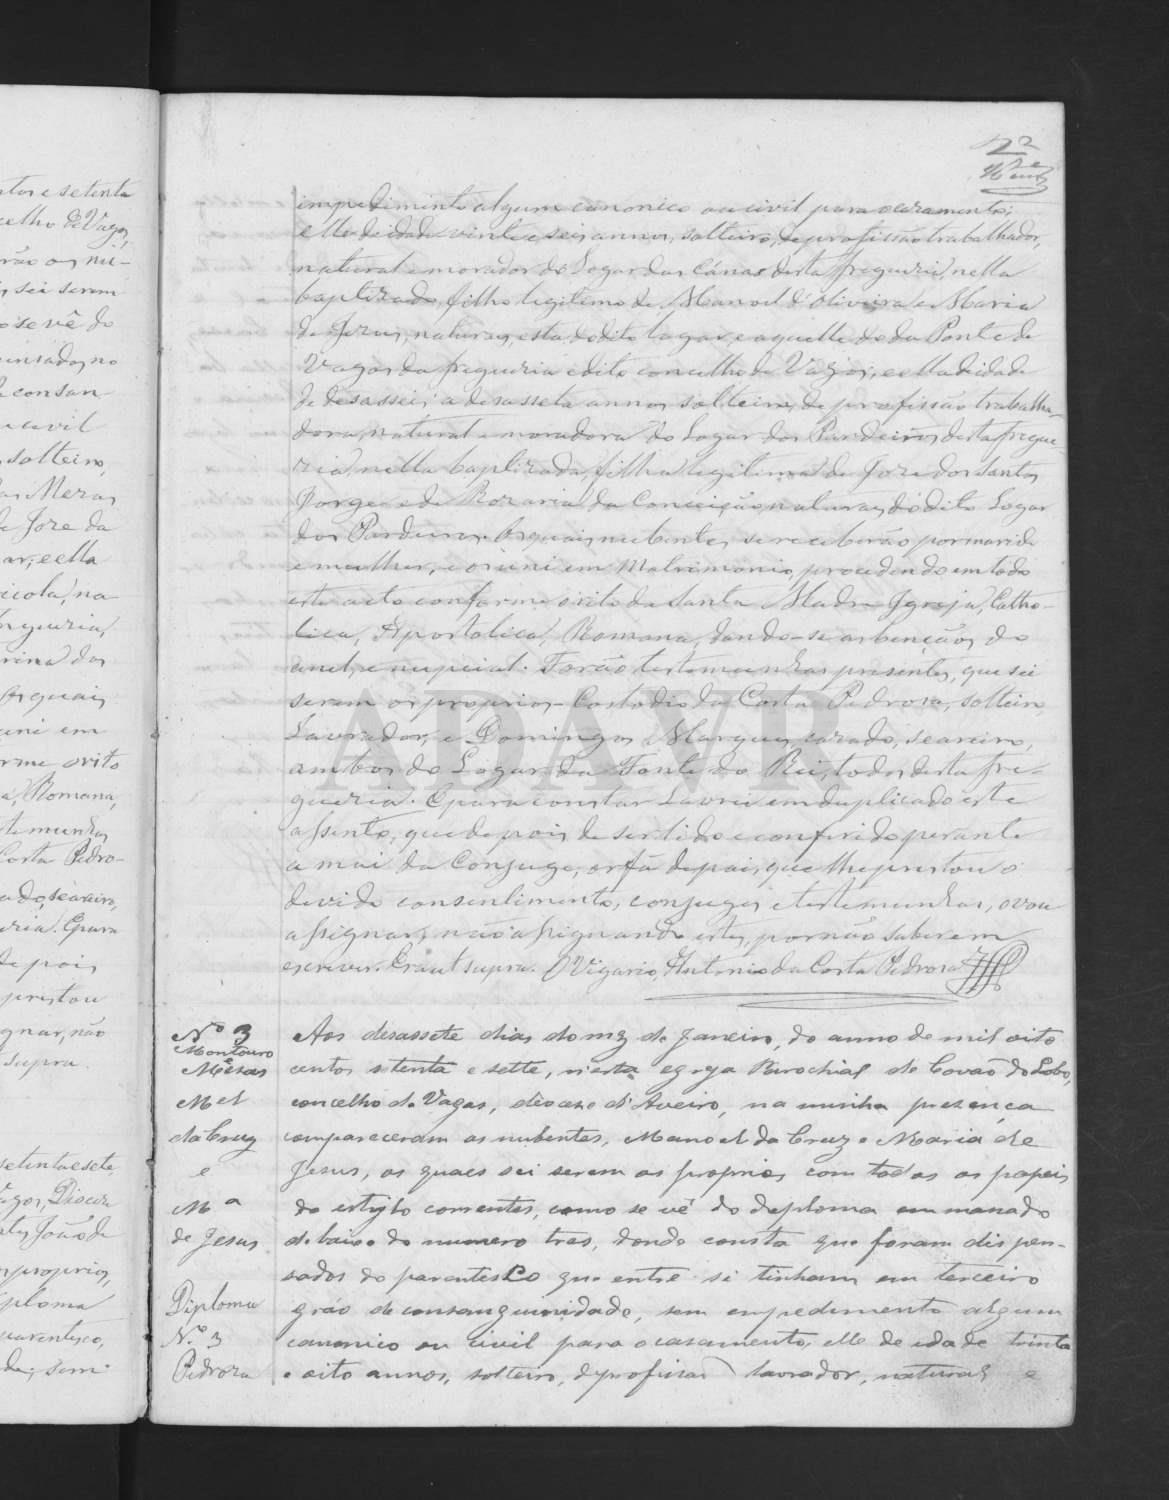 ntos e setenta
celho de Vagos
rão os nu-
sei serem
o se vê do
ensados no
consan
civil
solteiro,
das Mezas
Joze da
ar, e ella
icola, na
freguezia,
rina dos
Os quais
uni em
rme o rito
a, Romana,
temunhas
Costa Pedro-
ado, seareiro,
ezia. E para
depois
prestou
gnar, não
supra.
setenta e sete,
agos, Dioceze
João de
proprios,
iploma
parentesco,
de, sem
2
impedimento algum canonico ou civil para o cazamento;
elle de idade vinte e seis annos, solteiro, de profissão trabalhador,
natural e morador do Logar das Cánas desta freguezia, nella
baptizado, filho legitimo de Manoel d'Oliveira e Maria
de Jezus, naturaes, esta do dito lugar, e aquelle do da Ponte de
Vagos da freguezia e dito concelho de Vagos; e ella de idade
de desasseis a desassete annos, solteira, de profissão trabalha-
dora, natural e moradora do Logar dos Pardeiros desta fregue-
zia, nella baptizada, filha legitima de Joze dos Santos
Jorge e de Rozaria da Conceição, naturaes do dito Logar
dos Pardeiros. Os quais nubentes se receberão por marido
e mulher, e os uni em Matrimonio, procedendo em todo
este acto conforme o rito da Santa Madre Igreja, Catho-
lica, Apostolica, Romana, dando-se as bençãos do
anel, e nupcial. Forão testemunhas prezentes, que sei
serem os proprios - Costodio da Costa Pedroza, solteiro,
Lavrador, e Domingos Marques, cazado, seareiro,
ambos do Logar da Fonte do Rei, todos desta fre-
guezia. E para constar Lavrei em duplicado este
assento, que depois de ser lido e conferido perante
a mãi da Conjuge, orfã de pai, que lhe prestou o
devido consentimento, conjuges e testemunhas, o vou
assignar, não assignando estes, por não saberem
escrever. Era ut supra. O Vigario, Antonio da Costa Pedroza
Nº 3
Montouro
Mezas
Mel
da Cruz
e
Mª
de Jesus
Diploma
N.º 3
Pedroza
Aos desassete dias do mez de Janeiro, do anno de mil oito
centos setenta e sette, n'esta egreja Parochial de Covão do Lobo,
concelho de Vagos, diocese d'Aveiro, na minha presença
compareceram os nubentes, Manoel da Cruz e Maria de
Jesus, os quaes sei serem os proprios com todos os papeis
do estylo correntes, como se vê do deploma emmanado
debaixo do numero tres, donde consta que foram dispen-
sados do parentesco que entre si tinham em terceiro
gráo de consanguinidade, sem empedimento algum
canonico ou civil para o casamento, elle de edade trinta
e oito annos, solteiro, de profissão lavrador, natural e
ADAVR